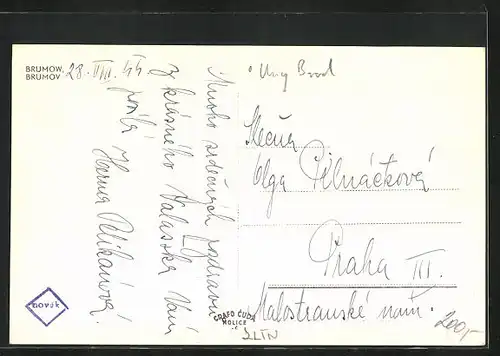 BRUMOW,
BRUMOV 28. VIII. 44
Mnoho srdečných pozdravů
z krásného Valašska Vám
posílá
Herma Pelikánová.
Ung Brod
Slečna
Olga Pilnáčková
Praha III.
Malostranské nám.
200,-
novák
GRAFO ČUDA
HOLICE
SLTN